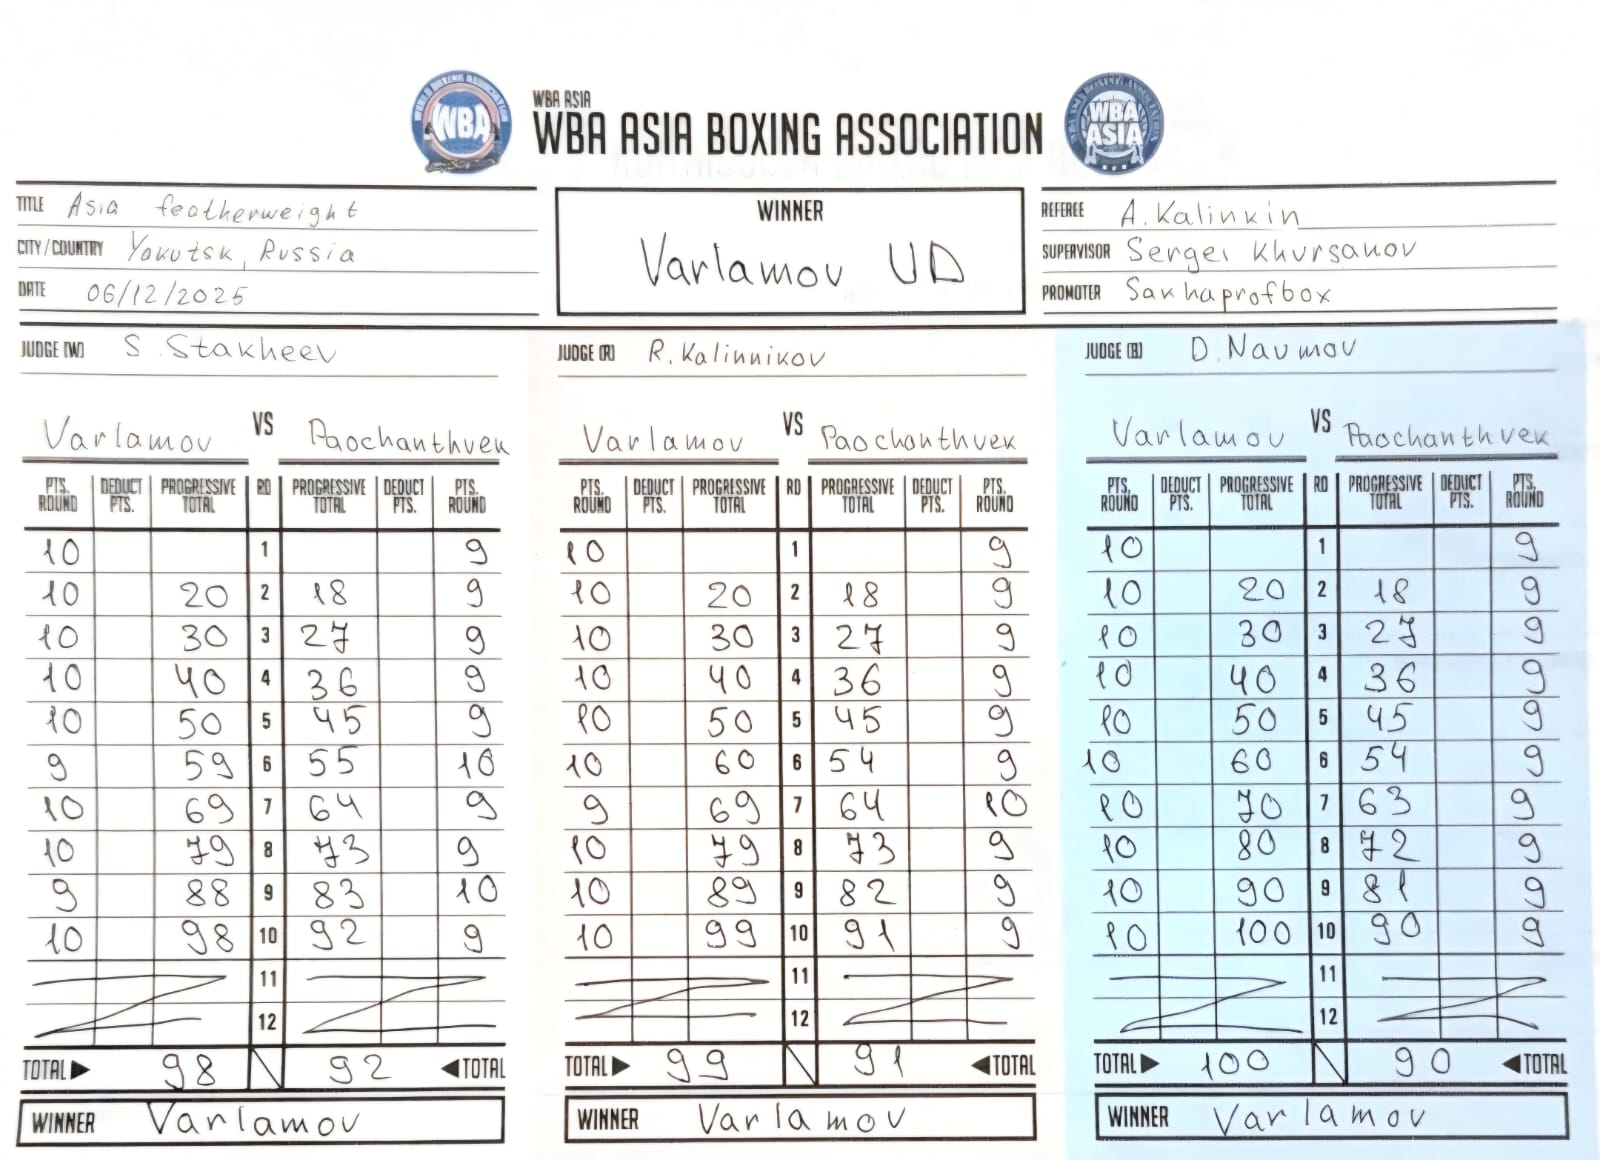 WBA ASIA
WBA ASIA BOXING ASSOCIATION
WBA
WBA ASIA
TITLE Asia featherweight
CITY/COUNTRY Yakutsk, Russia
DATE 06/12/2025
WINNER
Varlamov UD
REFEREE A. Kalinkin
SUPERVISOR Sergei Khursanov
PROMOTER Sakhaprofbox
JUDGE (W) S. Stakheev
Varlamov VS Paochanthvek
PTS. ROUND DEDUCT PTS. PROGRESSIVE TOTAL RD PROGRESSIVE TOTAL DEDUCT PTS. PTS. ROUND
10 1 9
10 20 2 18 9
10 30 3 27 9
10 40 4 36 9
10 50 5 45 9
9 59 6 55 10
10 69 7 64 9
10 79 8 73 9
9 88 9 83 10
10 98 10 92 9
11
12
TOTAL▶ 98 92 ◀TOTAL
WINNER Varlamov
JUDGE (R) R. Kalinnikov
Varlamov VS Paochanthvek
PTS. ROUND DEDUCT PTS. PROGRESSIVE TOTAL RD PROGRESSIVE TOTAL DEDUCT PTS. PTS. ROUND
10 1 9
10 20 2 18 9
10 30 3 27 9
10 40 4 36 9
10 50 5 45 9
10 60 6 54 9
9 69 7 64 10
10 79 8 73 9
10 89 9 82 9
10 99 10 91 9
11
12
TOTAL▶ 99 91 ◀TOTAL
WINNER Varlamov
JUDGE (B) D. Naumov
Varlamov VS Paochanthvek
PTS. ROUND DEDUCT PTS. PROGRESSIVE TOTAL RD PROGRESSIVE TOTAL DEDUCT PTS. PTS. ROUND
10 1 9
10 20 2 18 9
10 30 3 27 9
10 40 4 36 9
10 50 5 45 9
10 60 6 54 9
10 70 7 63 9
10 80 8 72 9
10 90 9 81 9
10 100 10 90 9
11
12
TOTAL▶ 100 90 ◀TOTAL
WINNER Varlamov